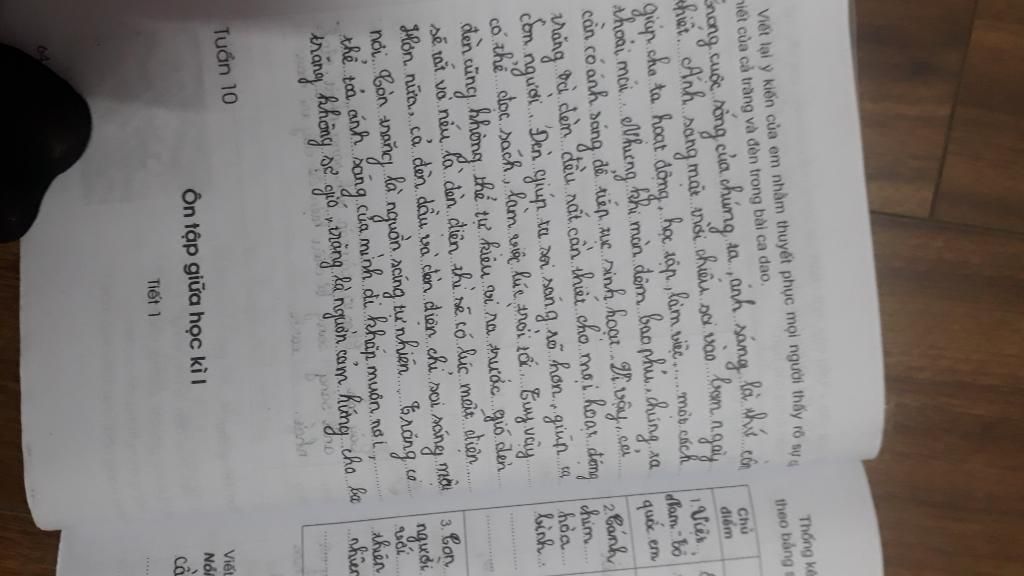 Viết lại ý kiến của em nhằm thuyết phục mọi người thấy rõ sự
thiết của cả trăng và đèn trong bài ca dao.
Trong cuộc sống của chúng ta, ánh sáng là thứ cần
thiết. Ánh sáng mặt trời chiếu soi vào ban ngày
giúp cho ta hoạt động, học tập, làm việc, một cách
thoải mái. Nhưng khi màn đêm bao phủ, chúng ta
cần có ánh sáng để tiếp tục sinh hoạt. Vì vậy, cả
trăng và đèn đều rất cần thiết cho mọi hoạt động
con người. Đèn giúp ta soi sáng rõ hơn, giúp ta
có thể đọc sách, làm việc lúc trời tối. Tuy vậy
đèn cũng không thể tự kiêu vì ra trước gió đèn
sẽ tắt và nếu là đèn điện thì sẽ có lúc mất điện.
Hơn nữa, cả đèn dầu và đèn điện chỉ soi sáng một
nơi. Còn trăng là nguồn sáng tự nhiên. Trăng có
thể toả ánh sáng của mình đi khắp muôn nơi,
trăng không sợ gió, trăng là nguồn cảm hứng cho ba
Tuần 10
Ôn tập giữa học kì I
Tiết 1
64
Thống kê
theo bảng
Chủ
điểm
1. Việt
Nam - Tổ
quốc em
2. Cánh
chim
hòa
bình
3. Con
người
với
thiên
nhiên
Viết